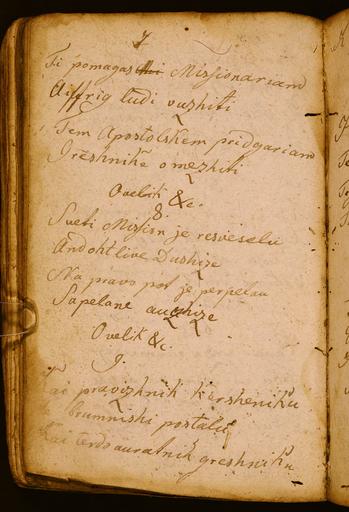 7
Ti pomagash Missionariam
Aiffrig ludi vuzhiti
Tem Apostolskem pridgariam
Greshnike omezhiti
Ovelik &c.
8.
Sveti Mission je resveselu
Andohtlive Dushize
Na pravo pot je perpelau
Sapelane auzhize
Ovelik &c.
9.
Kai pravizhnik kersheniku
brumniski postalu
Kai terdouratnik greshniku